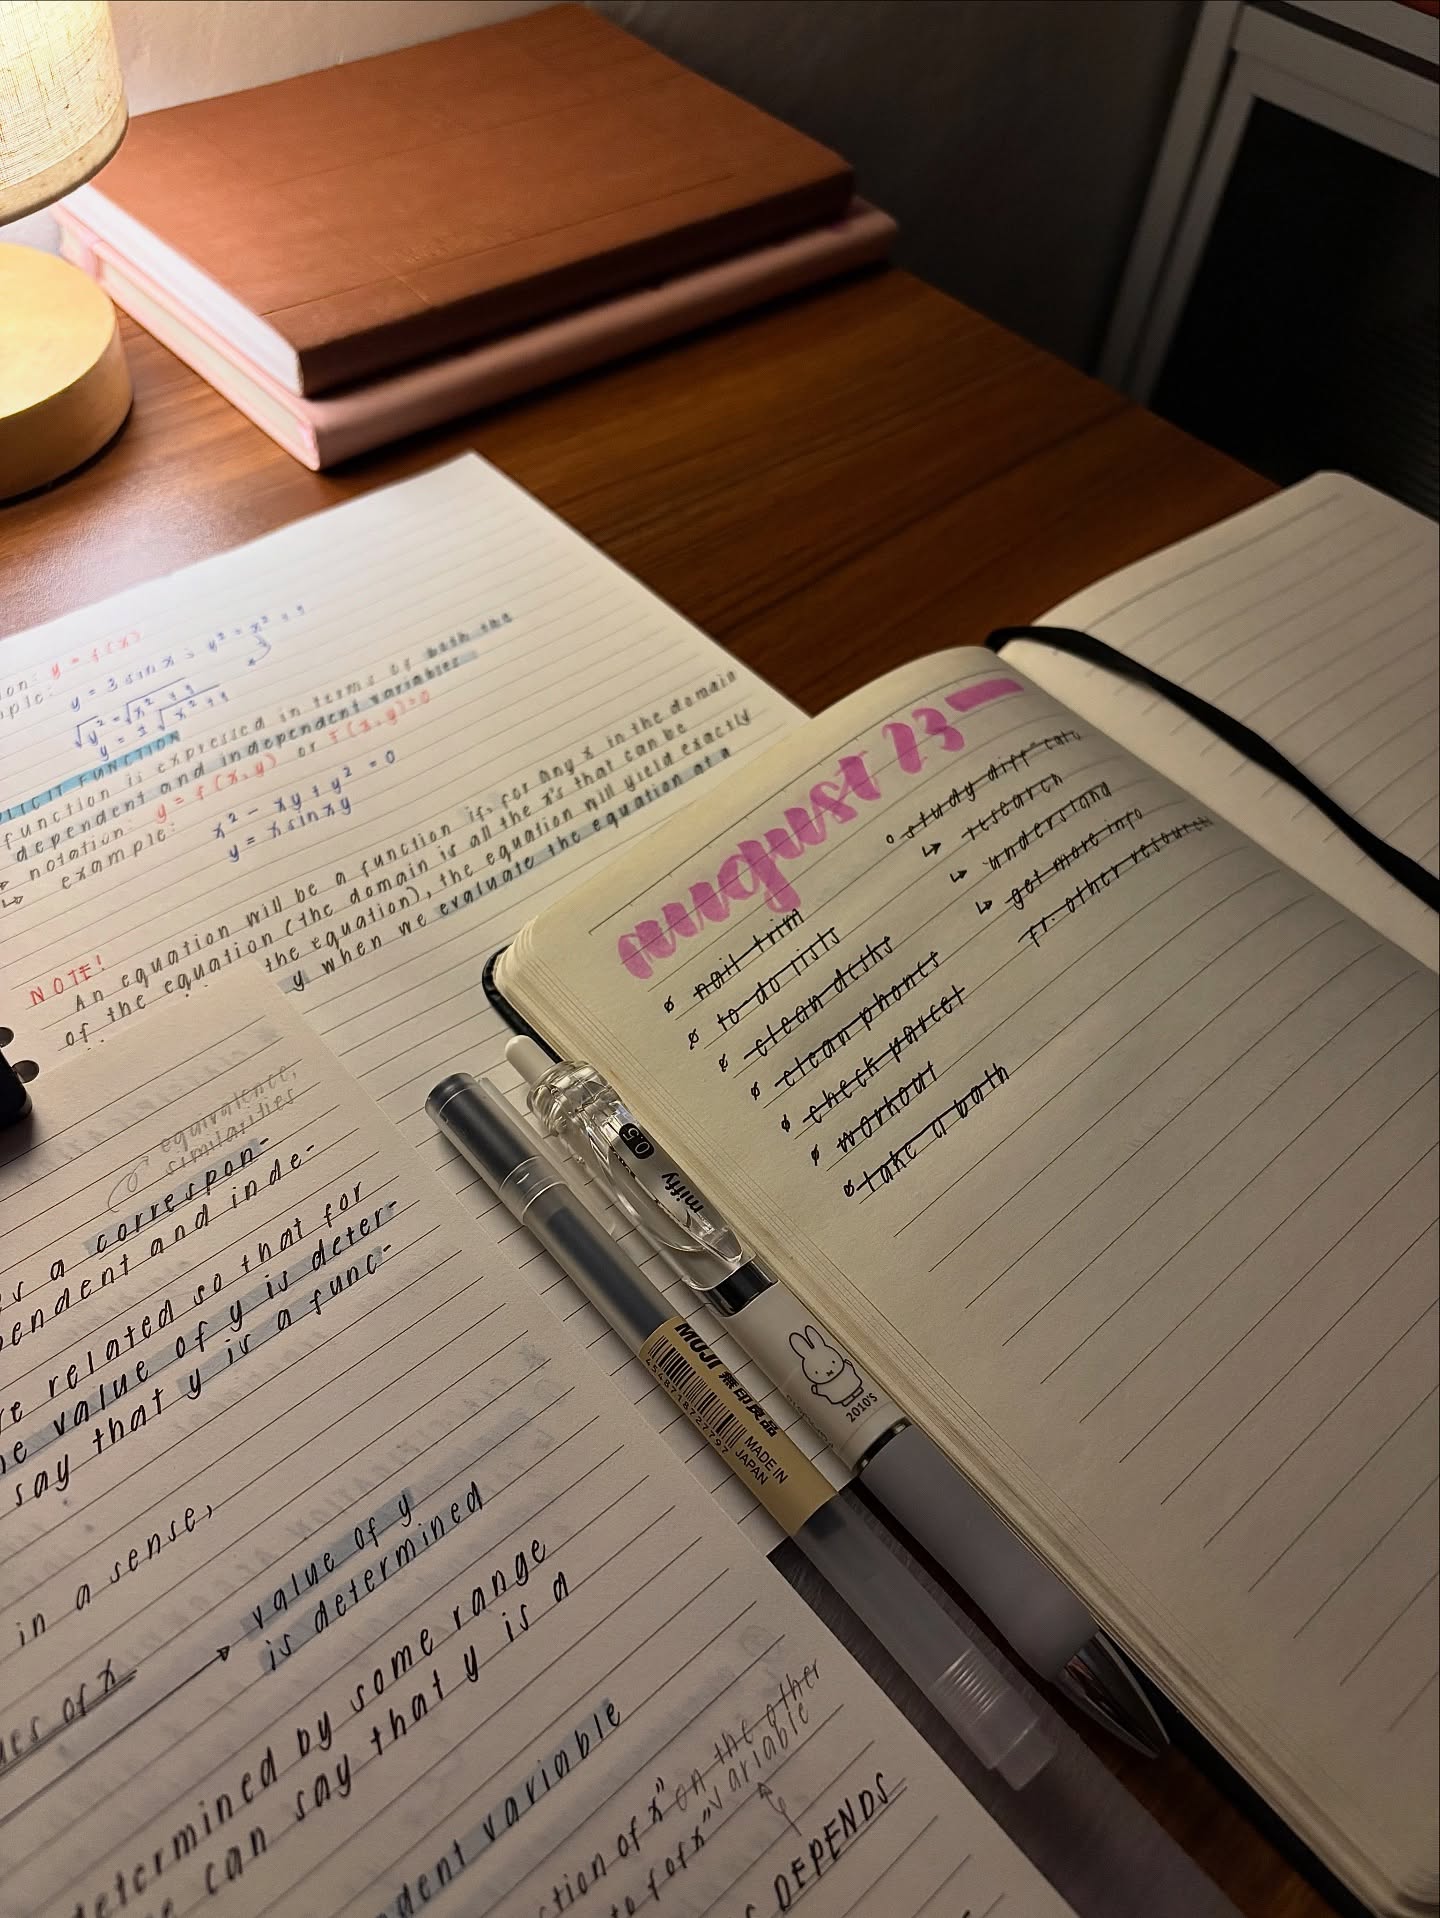 y = f(x)
y = 3 sin x ; y² = x² + 9
√y² = √x² + 9
y = ± √x² + 9
FUNCTION
function is expressed in terms of both the
dependent and independent variables
↳ notation: y = f(x,y) or f(x,y)=0
↳ example:
x² - xy + y² = 0
y = x sin xy
NOTE!
An equation will be a function if, for any x in the domain
of the equation (the domain is all the x's that can be
the equation), the equation will yield exactly
y when we evaluate the equation at a
equivalence,
similarities
a correspon-
and inde-
related so that for
value of y is deter-
say that y is a func-
in a sense,
of x → value of y
is determined
determined by some range
can say that y is a
variable
of x" on the other
of x" variable
DEPENDS
august 23
nail trim
to-do lists
clean desks
clean phones
check parcel
workout
take a bath
study diff calc
↳ research
↳ understand
↳ get more info
fr. other
0.5
miffy
2010'S
MUJI 無印良品
4548718727797
MADE IN
JAPAN